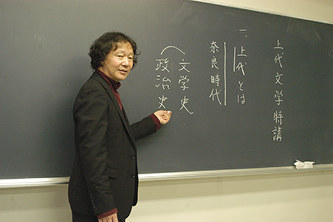 上代文学特講
一、上代とは
奈良時代
文学史
政治史